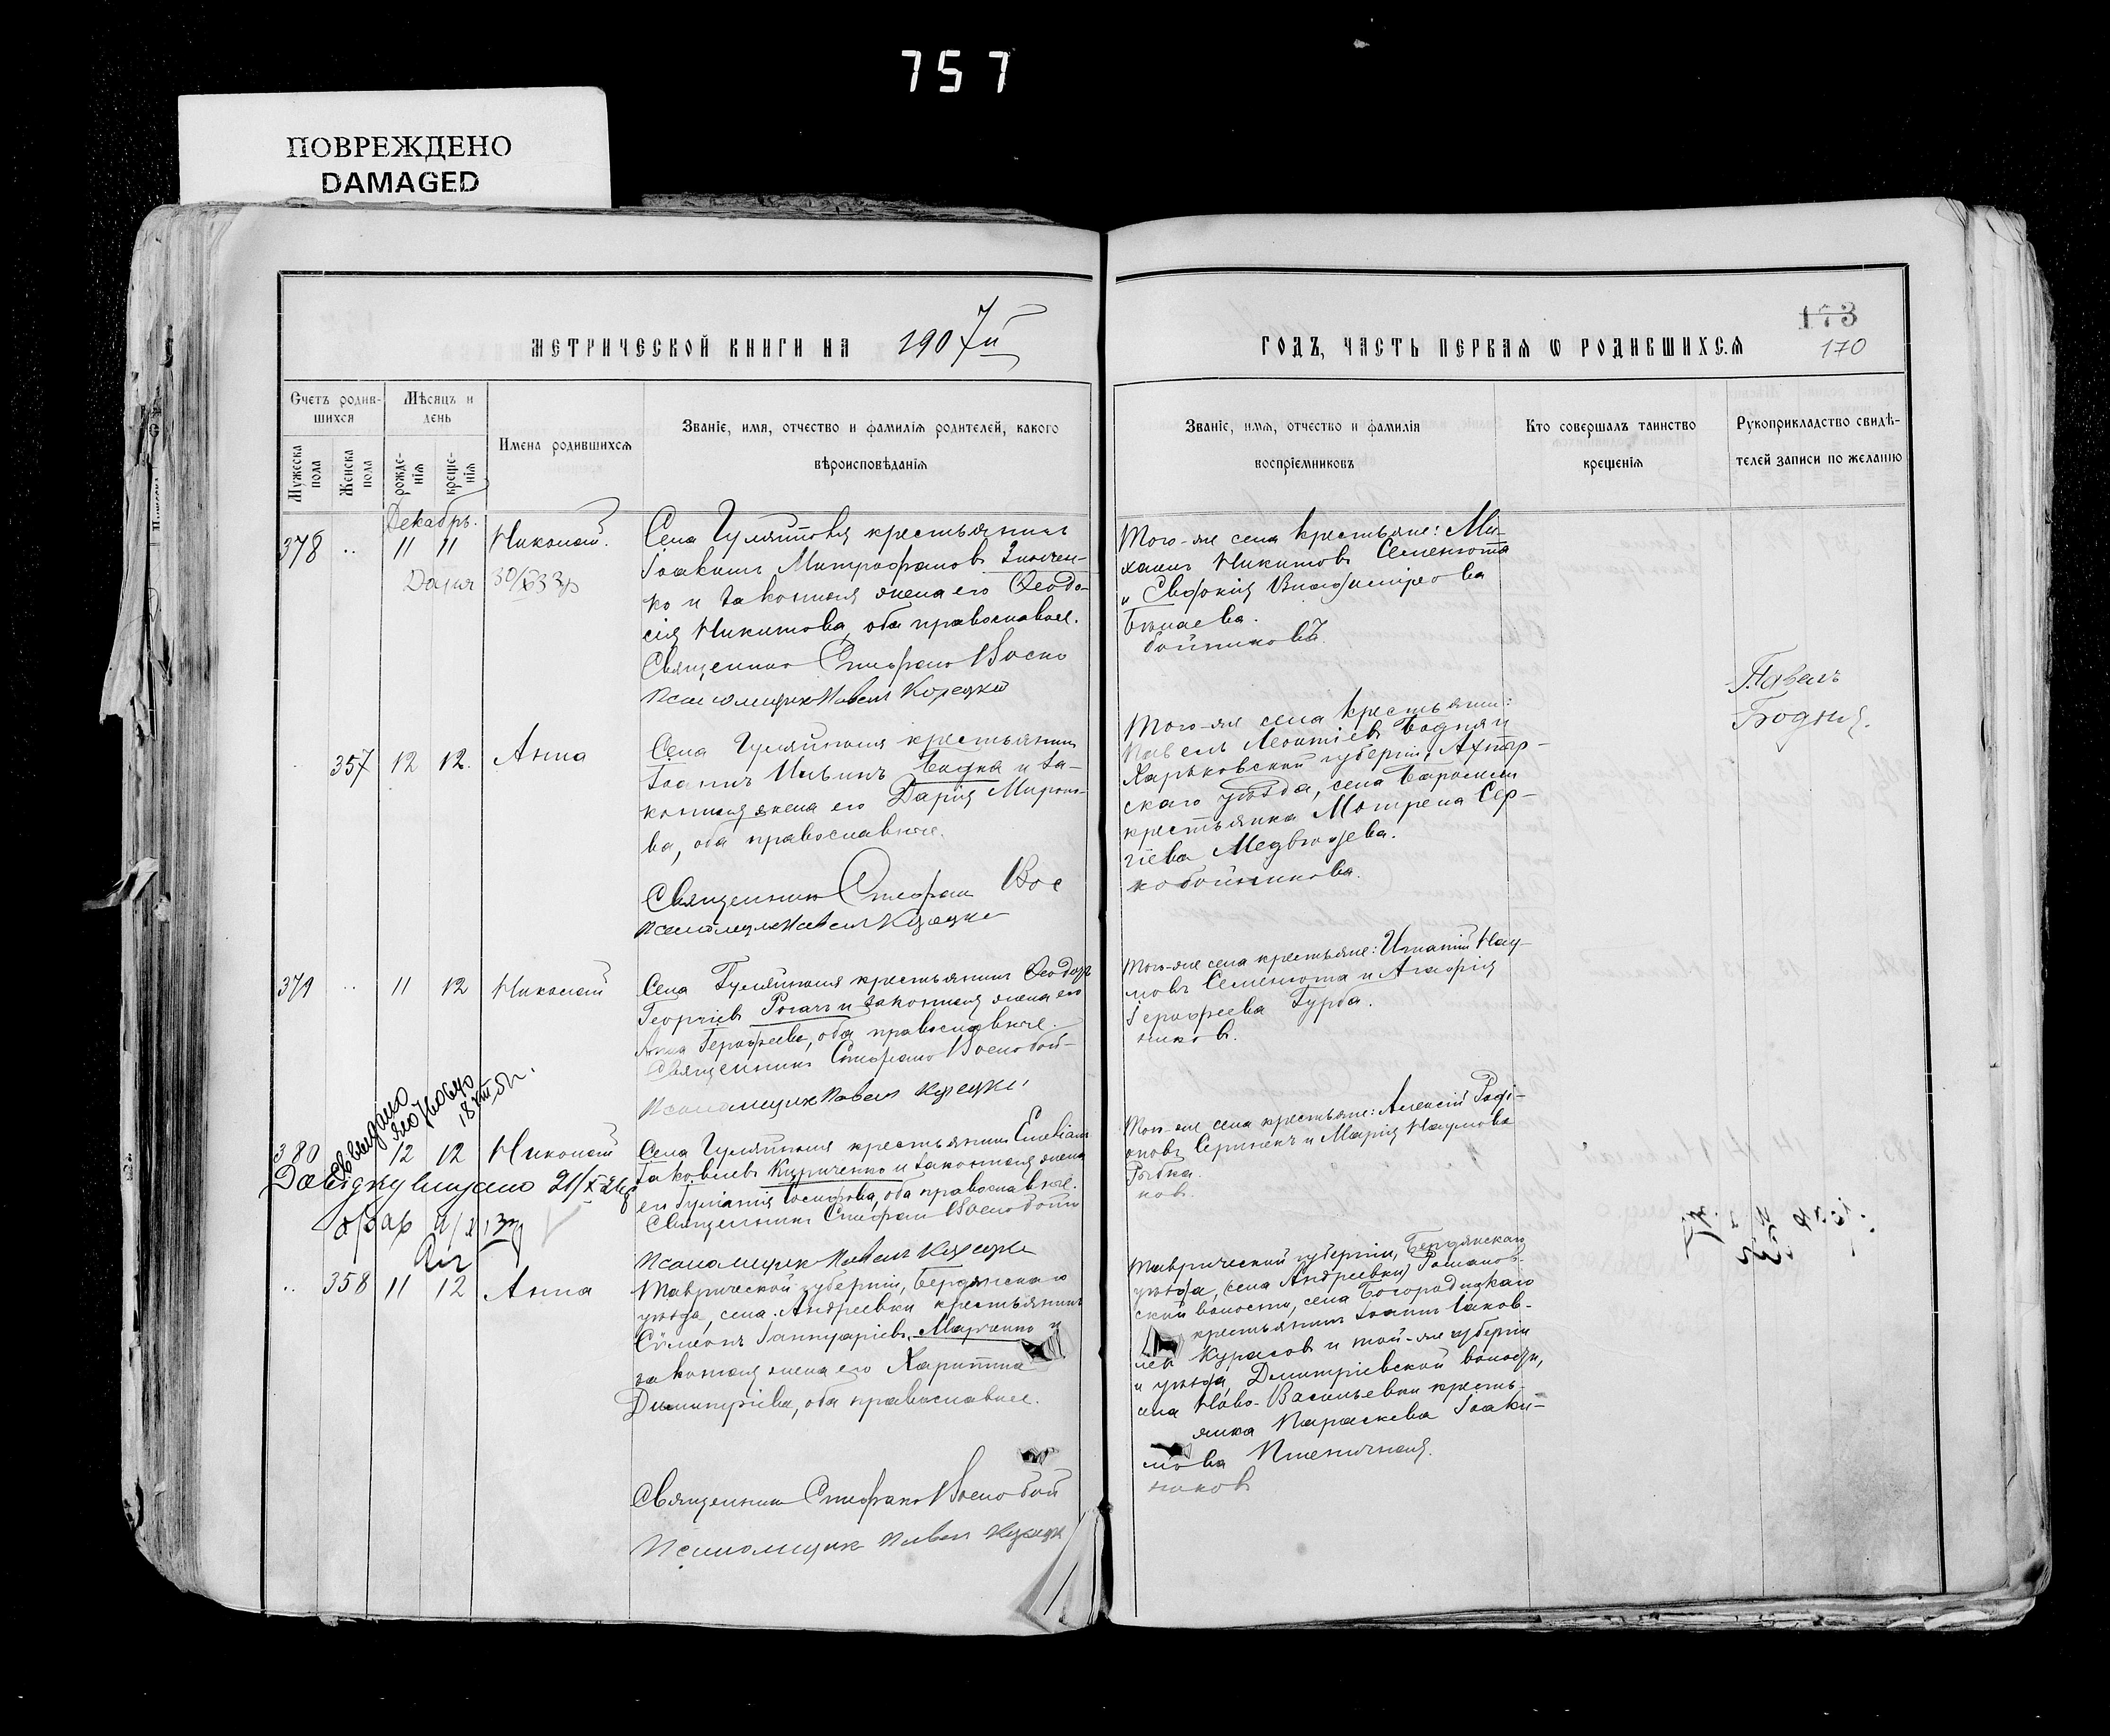 757
ПОВРЕЖДЕНО
DAMAGED
МЕТРИЧЕСКОЙ КНИГИ НА 1907й
ГОДЪ, ЧАСТЬ ПЕРВАЯ Ѡ РОДИВШИХСЯ
173
170
Счетъ родив-
шихся
Мужеска пола
Женска пола
Мѣсяцъ и
день
рожде-
нія
креще-
нія
Имена родившихся
Званіе, имя, отчество и фамилія родителей, какого
вѣроисповѣданія
Званіе, имя, отчество и фамилія
воспріемниковъ
Кто совершалъ таинство
крещенія
Рукоприкладство свидѣ-
телей записи по желанію
Декабрь.
378 11 11 Николай.
Села Гуляйполя крестьянинъ
Іоакимъ Митрофановъ Зинчен-
ко и законная жена его Ѳеодо-
сія Никитова, оба православные.
Священникъ Стефанъ Воско
Псаломщикъ Павелъ Корецкій
Того-же села крестьяне: Ми-
хаилъ Никитовъ Семенюта
и Евфимія
бойниковъ
357 12 12. Анна
Села Гуляйполя крестьянинъ
Іоаннъ Ильинъ Бодня и за-
конная жена его Дарія Мироно-
ва, оба православные.
Священникъ Стефанъ Вос
Псаломщикъ Павелъ Корецкій
Того-же села крестьянинъ:
Павелъ Леонтіевъ Бодня и
Харьковской губерніи, Ахтыр-
скаго уѣзда, села
крестьянка Мотрена Сер-
гіева Медвѣдева.
кобойникова.
Павелъ
Бодня.
379 11 12 Николай
Села Гуляйполя крестьянинъ Ѳеодоръ
Георгіевъ Рогачъ и законная жена его
Анна Іероѳеева, оба православные.
Священникъ Стефанъ Воскобой-
Псаломщикъ Павелъ Корецкій
Того-же села крестьяне: Игнатій Нау-
мовъ Семенюта и Агафія
Іероѳеева Гурба.
никовъ.
380 12 12 Николай
Села Гуляйполя крестьянинъ Емеліанъ
Іаковлевъ Куриченко и законная жена
его Іуліанія Іосифова, оба православные.
Священникъ Стефанъ Воскобой
Псаломщикъ Павелъ Корецкій
Того-же села крестьяне: Алексій Роді-
оновъ и Марія Наумова
Рыбка.
ковъ.
358 11 12 Анна
Таврической губерніи, Бердянскаго
уѣзда, села Андреевки крестьянинъ
Сѵмеонъ Іаннуаріевъ и
законная жена его Харитина
Димитріева, оба православные.
Священникъ Стефанъ Воскобой
Псаломщикъ Павелъ Корецк
Таврической губерніи, Бердянскаго
уѣзда, села Андреевки, Романов-
ской волости, села Богородицкаго
крестьянинъ Іоаннъ Іаков-
левъ Курасовъ и той-же губерніи
и уѣзда, Димитріевской волости,
села Ново-Васильевки кресть-
янка Параскева Іоаки-
мова Пшеничная.
никовъ